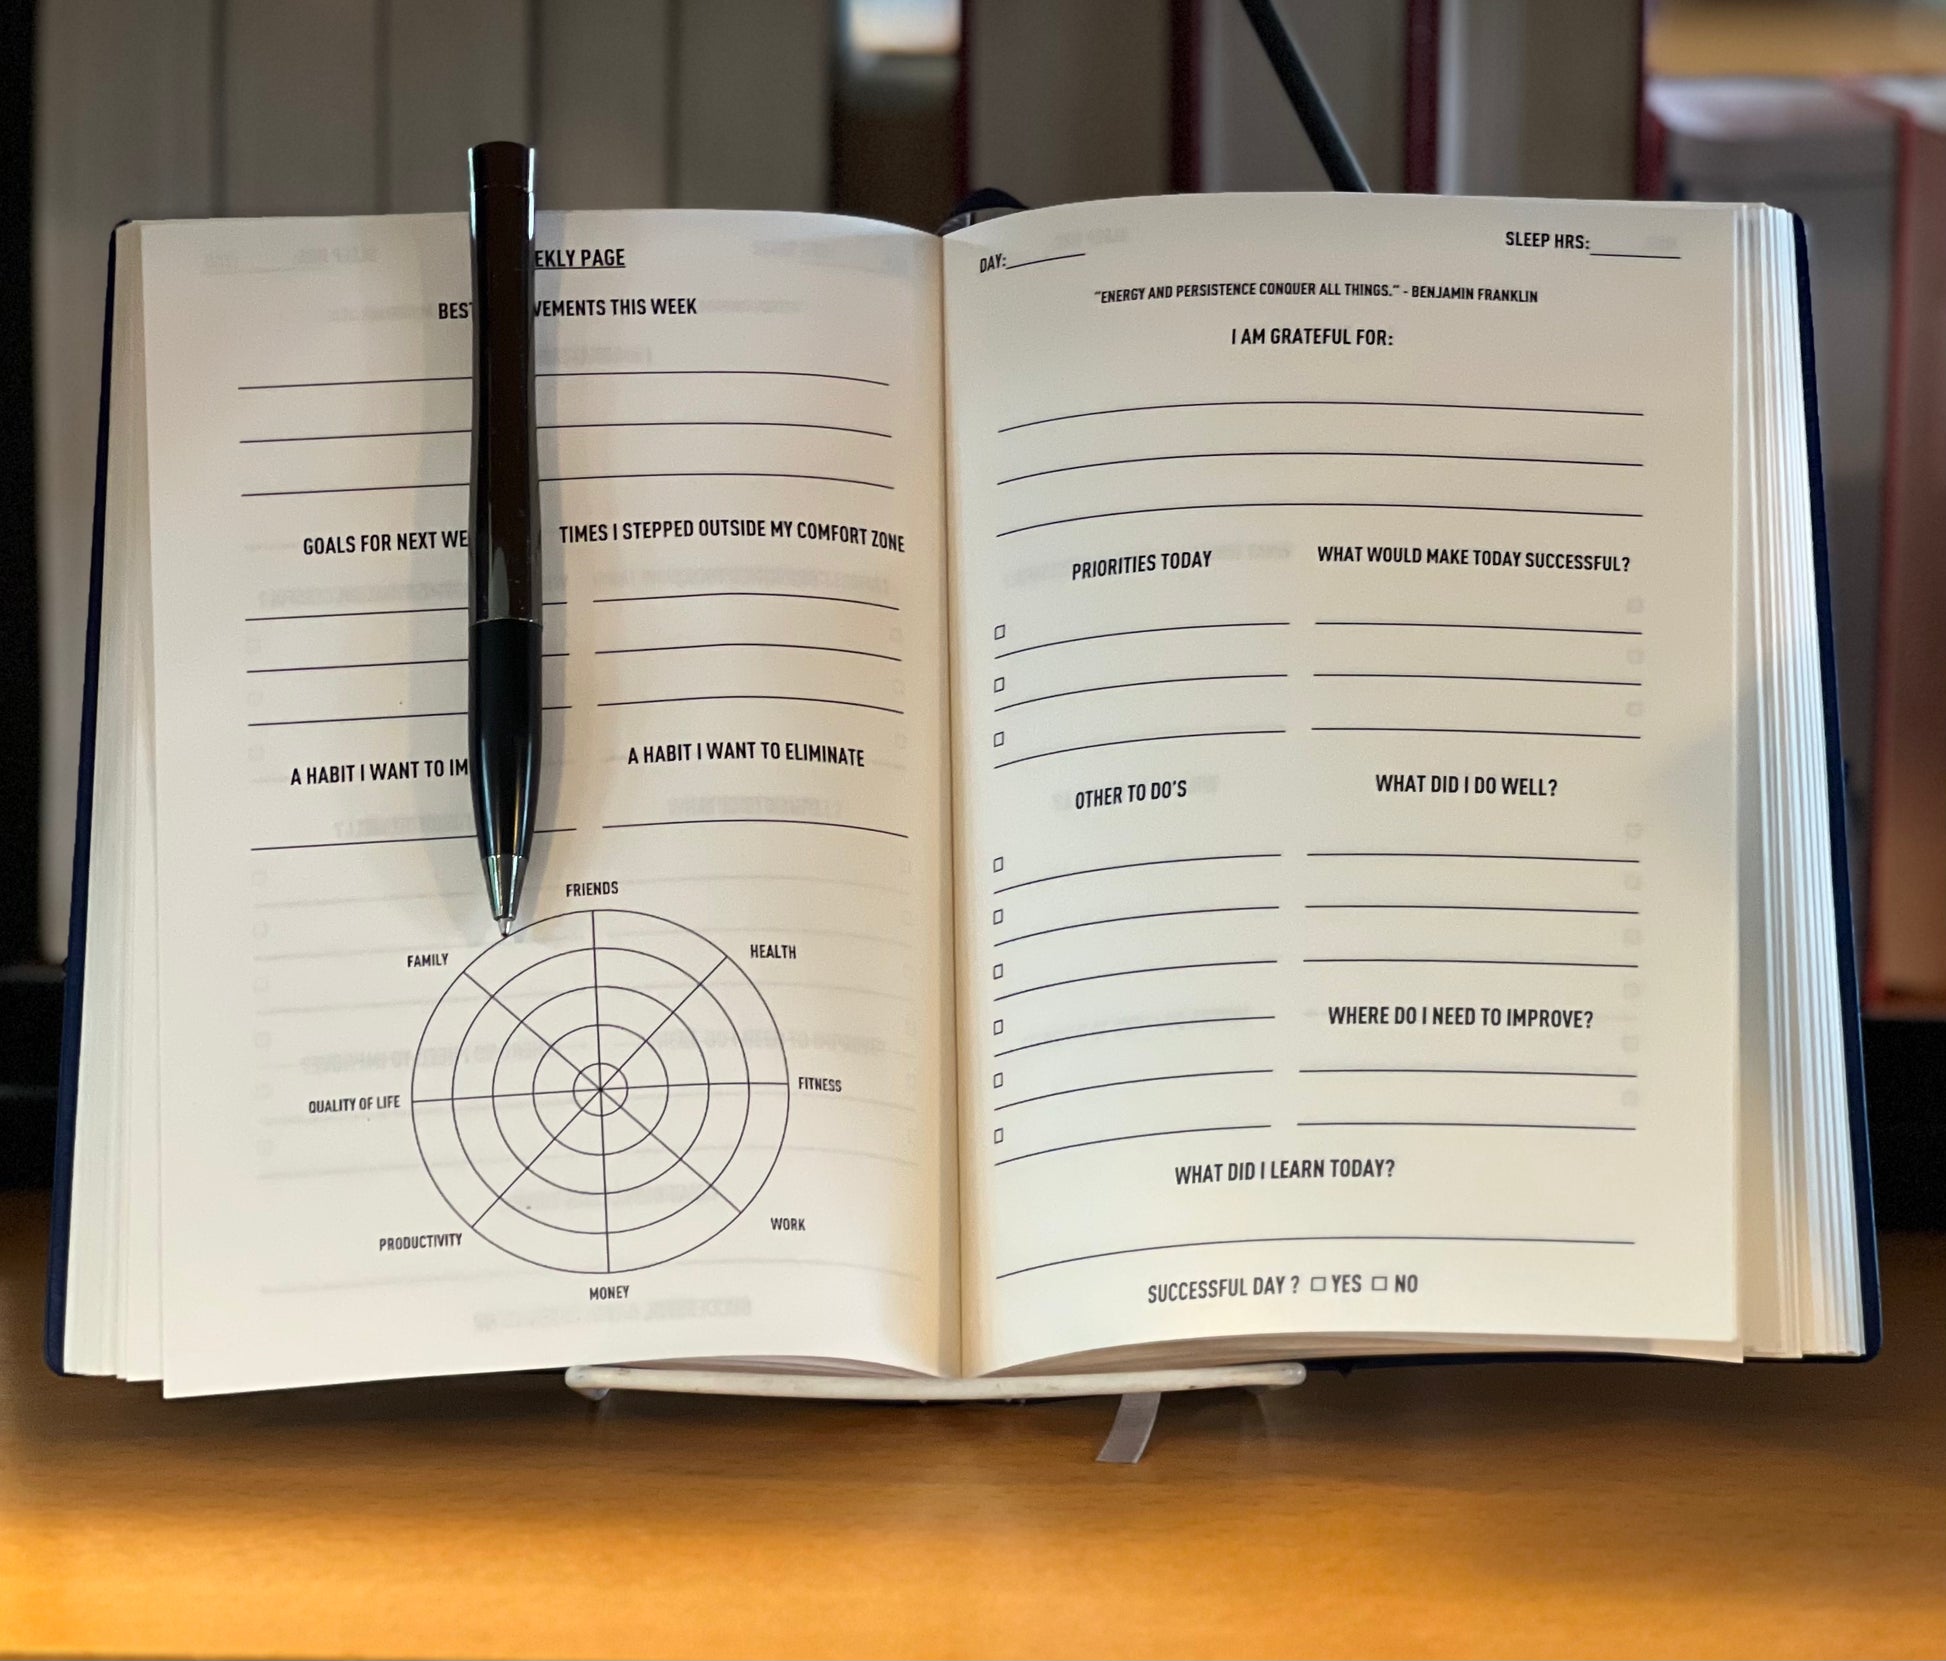 EKLY PAGE
BEST VEMENTS THIS WEEK
GOALS FOR NEXT WE
TIMES I STEPPED OUTSIDE MY COMFORT ZONE
A HABIT I WANT TO IM
A HABIT I WANT TO ELIMINATE
FRIENDS
FAMILY
HEALTH
QUALITY OF LIFE
FITNESS
PRODUCTIVITY
WORK
MONEY
DAY:
SLEEP HRS:
"ENERGY AND PERSISTENCE CONQUER ALL THINGS." - BENJAMIN FRANKLIN
I AM GRATEFUL FOR:
PRIORITIES TODAY
WHAT WOULD MAKE TODAY SUCCESSFUL?
OTHER TO DO'S
WHAT DID I DO WELL?
WHERE DO I NEED TO IMPROVE?
WHAT DID I LEARN TODAY?
SUCCESSFUL DAY ? YES NO